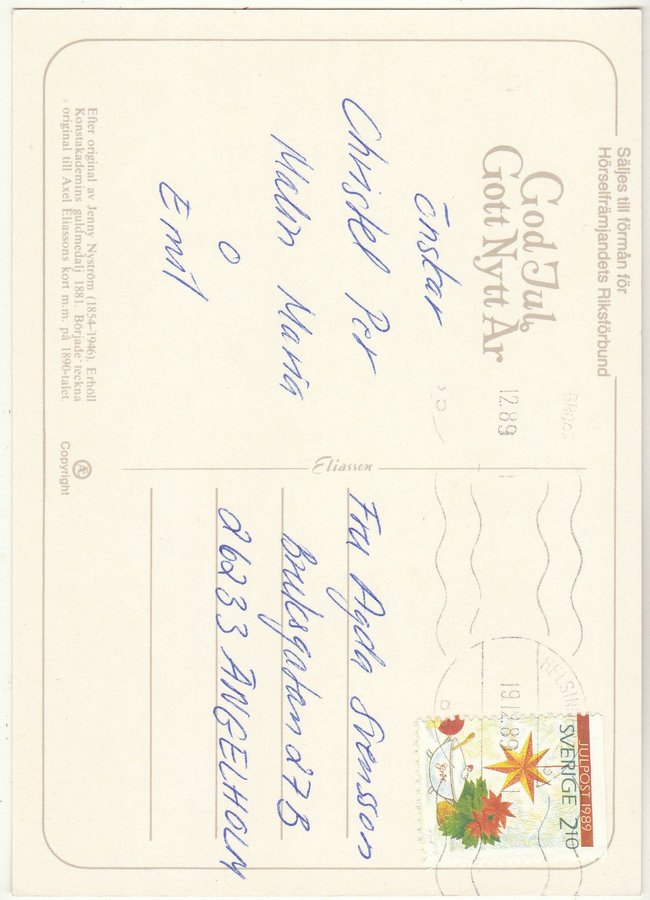 Säljes till förmån för
Hörselfrämjandets Riksförbund
God Jul
Gott Nytt År
önskar
Christel Per
Malin Maria
o
Emil
Efter original av Jenny Nyström (1854-1946). Erhöll
Konstakademins guldmedalj 1881. Började teckna
original till Axel Eliassons kort m.m. på 1890-talet.
Eliasson
Æ
Copyright
12.89
19.12.89
JULPOST 1989
SVERIGE 2.10
Fru Agda Svensson
Bruksgatan 27B
26233 ANGELHOLM